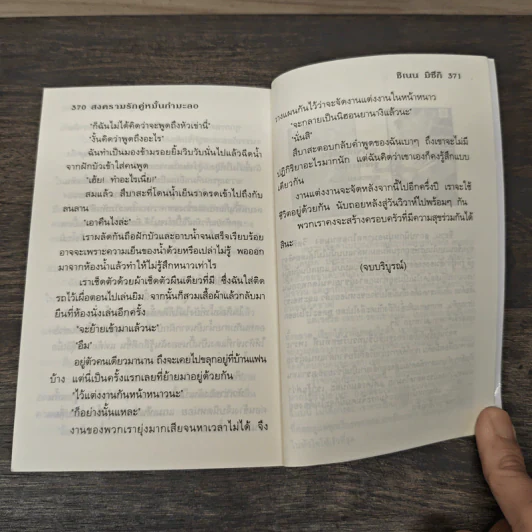 370 สงครามรักคู่หมั้นกำมะลอ
"ก็ฉันไม่ได้คิดว่าจะพูดถึงหัวเข่านี่"
"งั้นคิดว่าพูดถึงอะไร"
ฉันทำเป็นมองข้ามรอยยิ้มวิบวับนั่นไปแล้วฉีดน้ำ
จากฝักบัวเข้าใส่คนพูด
"เฮ้ย! ทำอะไรเนี่ย"
สมแล้ว สึบาสะที่โดนน้ำเย็นราดรดเข้าไปถึงกับ
ลนลาน
"เอาคืนไงล่ะ"
เราผลัดกันถือฝักบัวและอาบน้ำจนเสร็จเรียบร้อย
อาจจะเพราะความเย็นของน้ำด้วยหรือเปล่าไม่รู้ พอออก
มาจากห้องน้ำแล้วทำให้ไม่รู้สึกหนาวเท่าไร
เราเช็ดตัวด้วยผ้าเช็ดตัวผืนเดียวที่มี ซึ่งฉันใส่ติด
รถไว้เผื่อตอนไปเล่นยิม จากนั้นก็สวมเสื้อผ้าแล้วกลับมา
ยืนที่ห้องนั่งเล่นอีกครั้ง
"จะย้ายเข้ามาแล้วนะ"
"อืม"
อยู่ตัวคนเดียวมานาน ถึงจะเคยไปขลุกอยู่ที่บ้านแฟน
บ้าง แต่นี่เป็นครั้งแรกเลยที่ย้ายมาอยู่ด้วยกัน
"ไว้แต่งงานกันหน้าหนาวนะ"
"ก็อย่างนั้นแหละ"
งานของพวกเรายุ่งมากเสียจนหาเวลาไม่ได้ จึง
ชิเนน มิซึกิ 371
วางแผนกันไว้ว่าจะจัดงานแต่งงานในหน้าหนาว
"จะกลายเป็นนิฮอนยานางิแล้วนะ"
"นั่นสิ"
สึบาสะตอบกลับคำพูดของฉันเบาๆ ถึงเขาจะไม่มี
ปฏิกิริยาอะไรมากนัก แต่ฉันคิดว่าเขาเองก็คงรู้สึกแบบ
เดียวกัน
งานแต่งงานจะจัดหลังจากนี้ไปอีกครึ่งปี เราจะใช้
ชีวิตอยู่ด้วยกัน นับถอยหลังสู่วันวิวาห์ไปพร้อมๆ กัน
พวกเราคงจะสร้างครอบครัวที่มีความสุขร่วมกันได้
สินะ
(จบบริบูรณ์)